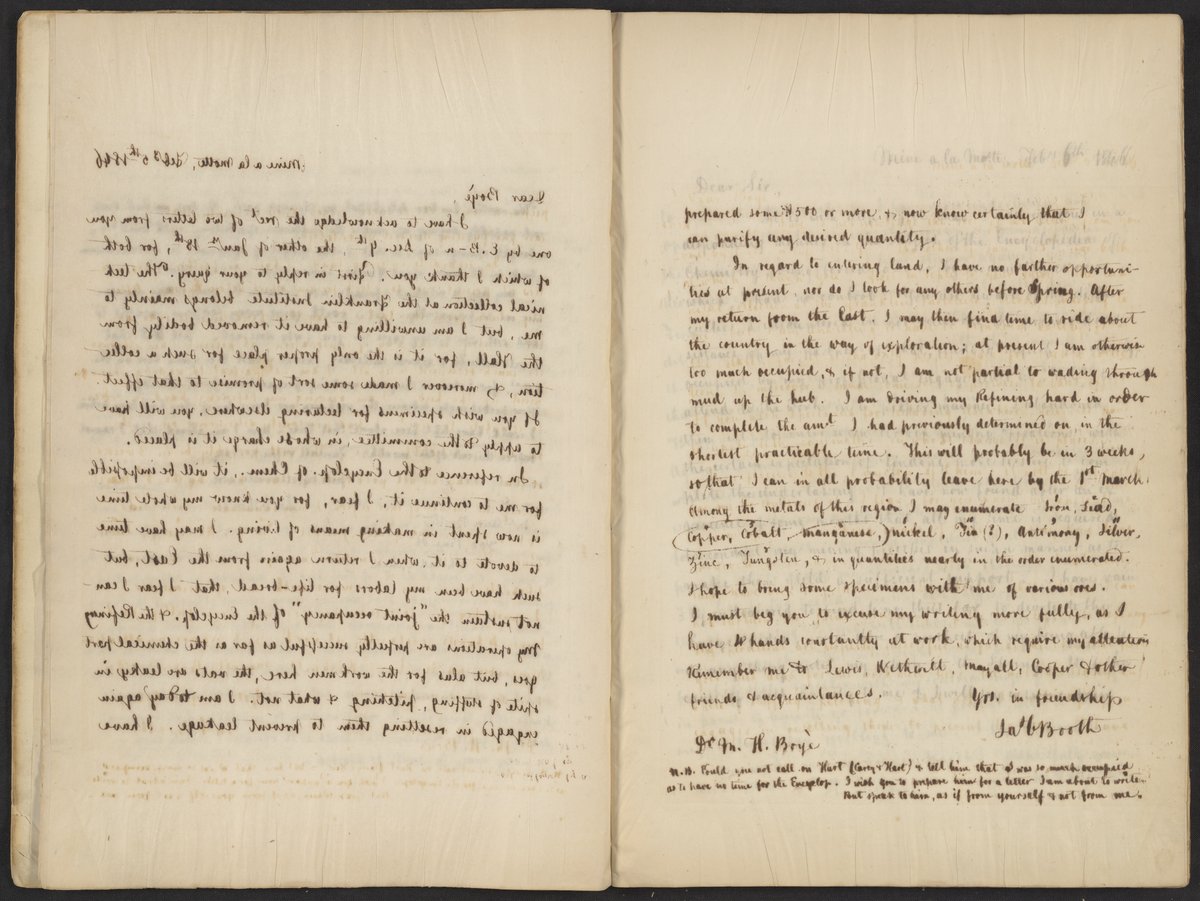 Mine a la Motte, Feb. 5th 1846
Dear Boyè,
I have to acknowledge the rect. of two letters from you
one by C. B–n of Dec. 9th, the other of Jany. 18th, for both
of which I thank you. First in reply to your query. The tech
nical collection at the Franklin Institute belongs mainly to
me, but I am unwilling to have it removed bodily from
the Hall, for it is the only proper place for such a collec
tion, & moreover I made some sort of promise to that effect.
If you wish specimens for lecturing elsewhere, you will have
to apply to the committee, in whose charge it is placed.
In reference to the Encyclop. of Chem., it will be impossible
for me to continue it, I fear, for you know my whole time
is now spent in making means of living. I may have time
to devote to it, when I return again from the East, but
such have been my labors for life-bread, that I fear I can
not sustain the "joint occupancy" of the Encyclop. & the Refining
My operations are perfectly successful as far as the chemical part
goes, but alas for the workmen here, the vats are leaky in
spite of stuffing, pitching & what not. I am to day again
engaged in resetting them to prevent leakage. I have
Mine a la Motte, Feby 6th 1846
Dear Sir,
prepared some $500 or more, & now know certainly that I
can purify any desired quantity.
In regard to entering land, I have no farther opportuni-
ties at present, nor do I look for any others before Spring. After
my return from the East, I may then find time to ride about
the country in the way of exploration; at present I am otherwise
too much occupied, & if not, I am not partial to wading through
mud up the hub. I am driving my Refining hard in order
to complete the amt. I had previously determined on, in the
shortest practicable time. This will probably be in 3 weeks,
so that I can in all probability leave here by the 1st March.
Among the metals of this region I may enumerate Iron, Lead,
Copper, Cobalt, manganese, nickel, Tin (?), Antimony, Silver,
Zinc, Tungsten, & in quantities nearly in the order enumerated.
I hope to bring some specimens with me of various ores.
I must beg you to excuse my writing more fully, as I
have 4 hands constantly at work, which require my attention
Remember me to Lewis, Wetherill, Mayall, Cooper & other
friends & acquaintances. Yrs. in friendship
Jas C Booth
Dr M. H. Boyè
N.B. Could you not call on Hart (Carey & Hart) & tell him that I was so much occupied
as to have no time for the Encyclop. I wish you to prepare him for a letter I am about to write
But speak to him, as if from yourself & not from me.